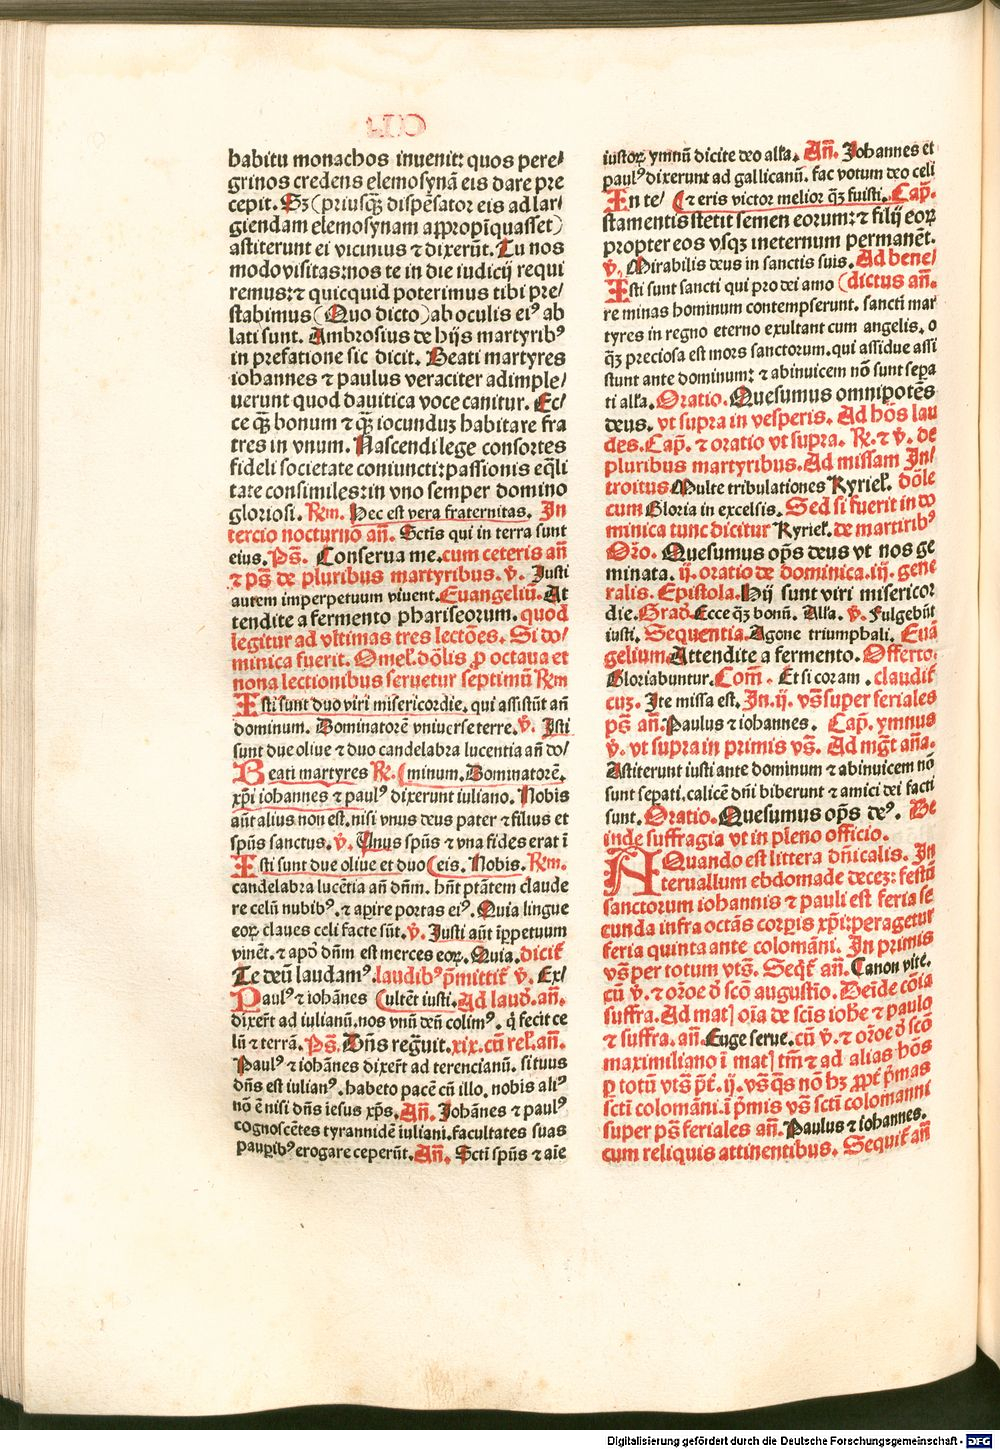 habitu monachos inuenit: quos pere/
grinos credens elemosynā eis dare pre
cepit. Sz (priusqꝫ dispēsator eis ad lar/
giendam elemosynam appropīquasset)
astiterunt ei vicinius ⁊ dixerūt. Tu nos
modo visitas: nos te in die iudicij requi
remus: ⁊ quicquid poterimus tibi pre/
stabimus (Quo dicto) ab oculis eiꝰ ab
lati sunt. Ambrosius de hijs martyribꝰ
in prefatione sic dicit. Beati martyres
iohannes ⁊ paulus veraciter adimple/
uerunt quod dauitica voce canitur. Ec/
ce qꝫ bonum ⁊ qꝫ iocunduꝫ habitare fra
tres in vnum. Nascendi lege consortes
fideli societate coniuncti: passionis eq̄li
tate consimiles: in vno semper domino
gloriosi. Rm̄. Hec est vera fraternitas. In
tercio nocturno añ. Sctīs qui in terra sunt
eius. Ps̄. Conserua me. cum ceteris añ
⁊ ps̄ de pluribus martyribus. v̄. Justi
autem imperpetuum viuent. Euangeliū. At
tendite a fermento phariseorum. quod
legitur ad vltimas tres lectōes. Si do/
minica fuerit. Omel. dōlis ꝓ octaua et
nona lectionibus seruetur septimū Rm̄
Isti sunt duo viri misericordie. qui assistūt añ
dominum. Dominatorē vniuerse terre. v̄. Isti
sunt due oliue ⁊ duo candelabra lucentia añ do/
Beati martyres Rē. (minum. Dominatorē.
xp̄i iohannes ⁊ paulꝰ dixerunt iuliano. Nobis
aūt alius non est. nisi vnus deus pater ⁊ filius et
spūs sanctus. v̄. Vnus spūs ⁊ vna fides erat ī
Isti sunt due oliue et duo (eis. Nobis. Rm̄.
candelabra lucētia añ dn̄m. hn̄t ptātem claude
re celū nubibꝰ. ⁊ apire portas eiꝰ. Quia lingue
eoꝝ claues celi facte sūt. v̄. Justi aūt īppetuum
viuēt. ⁊ apō dn̄m est merces eoꝝ. Quia. dicit̄
Te deū laudamꝰ. laudibꝰ p̄mittit̄ v̄. Ex/
Paulꝰ ⁊ iohānes (ultēt iusti. Ad laud. añ.
dixer̄t ad iulianū. nos vnū deū colimꝰ. q̄ fecit ce
lū ⁊ terrā. Ps̄. Dn̄s regnuit. xix. cū rel. añ.
Paulꝰ ⁊ iohānes dixer̄t ad terencianū. si tuus
dn̄s est iulianꝰ. habeto pacē cū illo. nobis aliꝰ
nō ē nisi dn̄s iesus xp̄s. Añ. Johānes ⁊ paulꝰ
cognoscētes tyrannidē iuliani. facultates suas
pauꝑibꝰ erogare ceperūt. Añ. Scti spūs ⁊ aīe
iustoꝝ ymnū dicite deo alla. Añ. Johannes et
paulꝰ dixerunt ad gallicanū. fac votum deo celi
In te/ (⁊ eris victor melior qꝫ fuisti. Cap̄.
stamentis stetit semen eorum: ⁊ filij eoꝝ
propter eos vsqꝫ ineternum permanēt.
v̄. Mirabilis deus in sanctis suis. Ad bene/
Isti sunt sancti qui pro dei amo (dictus añ.
re minas hominum contempserunt. sancti mar
tyres in regno eterno exultant cum angelis. o
qꝫ preciosa est mors sanctorum. qui assidue assi
stunt ante dominum: ⁊ abinuicem nō sunt sepa
ti alla. Oratio. Quesumus omnipotēs
deus. vt supra in vesperis. Ad hōs lau
des. Cap̄. ⁊ oratio vt supra. Rē. ⁊ v̄. de
pluribus martyribus. Ad missam In/
troitus Multe tribulationes Kyriel. dōle
cum Gloria in excelsis. Sed si fuerit in do
minica tunc dicitur Kyriel. de martiribꝰ
Or̄o. Quesumus op̄s deus vt nos ge
minata. ij. oratio de dominica. iij. gene
ralis. Epistola. Hij sunt viri misericor
die. Grad. Ecce qꝫ bonū. Alla. v̄. Fulgebūt
iusti. Sequentia. Agone triumphali. Euā
gelium Attendite a fermento. Offerto.
Gloriabuntur. Com̄. Et si coram. claudit̄
cuꝫ. Ite missa est. In. ij. vs̄ super feriales
ps̄ añ. Paulus ⁊ iohannes. Cap̄. ymnus
v̄. vt supra in primis vs̄. Ad mgt̄ aña.
Astiterunt iusti ante dominum ⁊ abinuicem nō
sunt sepati. calicē dn̄i biberunt ⁊ amici dei facti
sunt. Oratio. Quesumus op̄s deꝰ. De
inde suffragia vt in pleno officio.
A Quando est littera dn̄icalis. In
teruallum ebdomade decez: festū
sanctorum iohannis ⁊ pauli est feria se
cunda infra octās corꝑis xp̄i: peragetur
feria quinta ante colomāni. In primis
vs̄ per totum vts̄. Seqt̄ añ. Canon vite.
cū v̄. ⁊ or̄oe ō scō augustīo. Deīde cōia
suffra. Ad mat] oīa de scīs iohe ⁊ paulo
⁊ suffra. añ. Euge serue. cū v̄. ⁊ or̄oe ō scō
maximiliano ī mat] tm̄ ⁊ ad alias hōs
ꝑ totū vts̄ p̄t. ij. vs̄ qs̄ nō hꝫ ꝓpt̄ p̄mas
scti colomāni. ī p̄mis vs̄ scti colomanni
super ps̄ feriales añ. Paulus ⁊ iohannes.
cum reliquis attinentibus. Sequit̄ añ
Digitalisierung gefördert durch die Deutsche Forschungsgemeinschaft - DFG